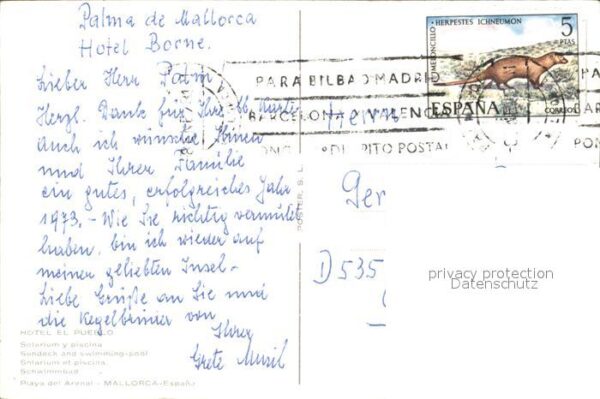 Palma de Mallorca
Hotel Borne.
Lieber Herr Palm
Herzl. Dank für Ihre lb. Karte
Auch ich wünsche Ihnen
und Ihrer Familie
ein gutes, erfolgreiches Jahr
1973. - Wie Sie richtig vermutet
haben, bin ich wieder auf
meiner geliebten Insel -
Liebe Grüße an Sie und
die Kegelbrüder von
Ihrer
Grete
HOTEL EL PUEBLO
Solarium y piscina
Sundeck and swimming-pool
Solarium et piscina
Schwimmbad
Playa del Arenal - MALLORCA-España
POSTER, S. L.
MELONCILLO - HERPESTES ICHNEUMON
5
PTAS
ESPAÑA
CORREOS
PARA BILBAO MADRID
BARCELONA VALENCIA
PONG
POSTAL
PA
BAR
PON
Herrn
Ger
D 535
privacy protection
Datenschutz